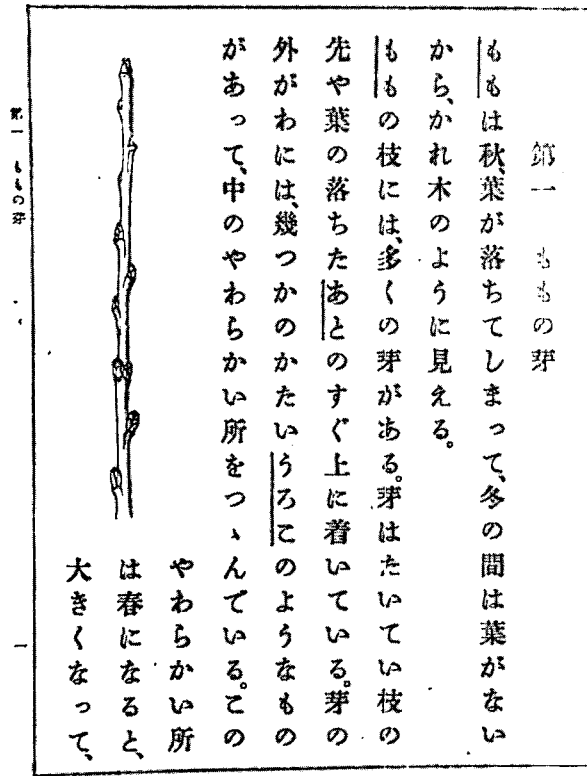 第一 ももの芽
ももは秋、葉が落ちてしまって、冬の間は葉がない
から、かれ木のように見える。
ももの枝には、多くの芽がある。芽はたいてい枝の
先や葉の落ちたあとのすぐ上に着いている。芽の
外がわには、幾つかのかたいうろこのようなもの
があって、中のやわらかい所をつゝんでいる。この
やわらかい所
は春になると、
大きくなって、
第一 ももの芽
一